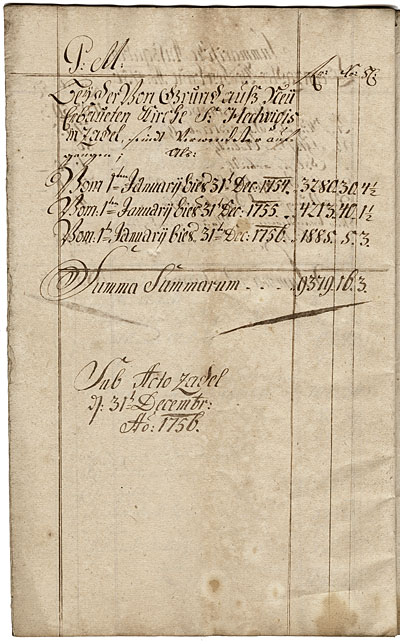 P: M:
Bey der Von Grund auß Neu
Erbaueten Kirche St: Hedwigis
in Zadel, seind Verwendeter auf-
gangen; Als:
Vom 1ten January bies 31t Dec: 1754. 3280. 30. 4½
Vom 1ten January bies 31t Dec: 1755. . 4213. 40. 1½
Vom 1t January bies 31t Dec: 1756. . 1885. 5. 3.
Summa Summarum - - - . 9379. 16. 3.
Sub Acto Zadel
d: 31t Decembr:
Ao: 1756.